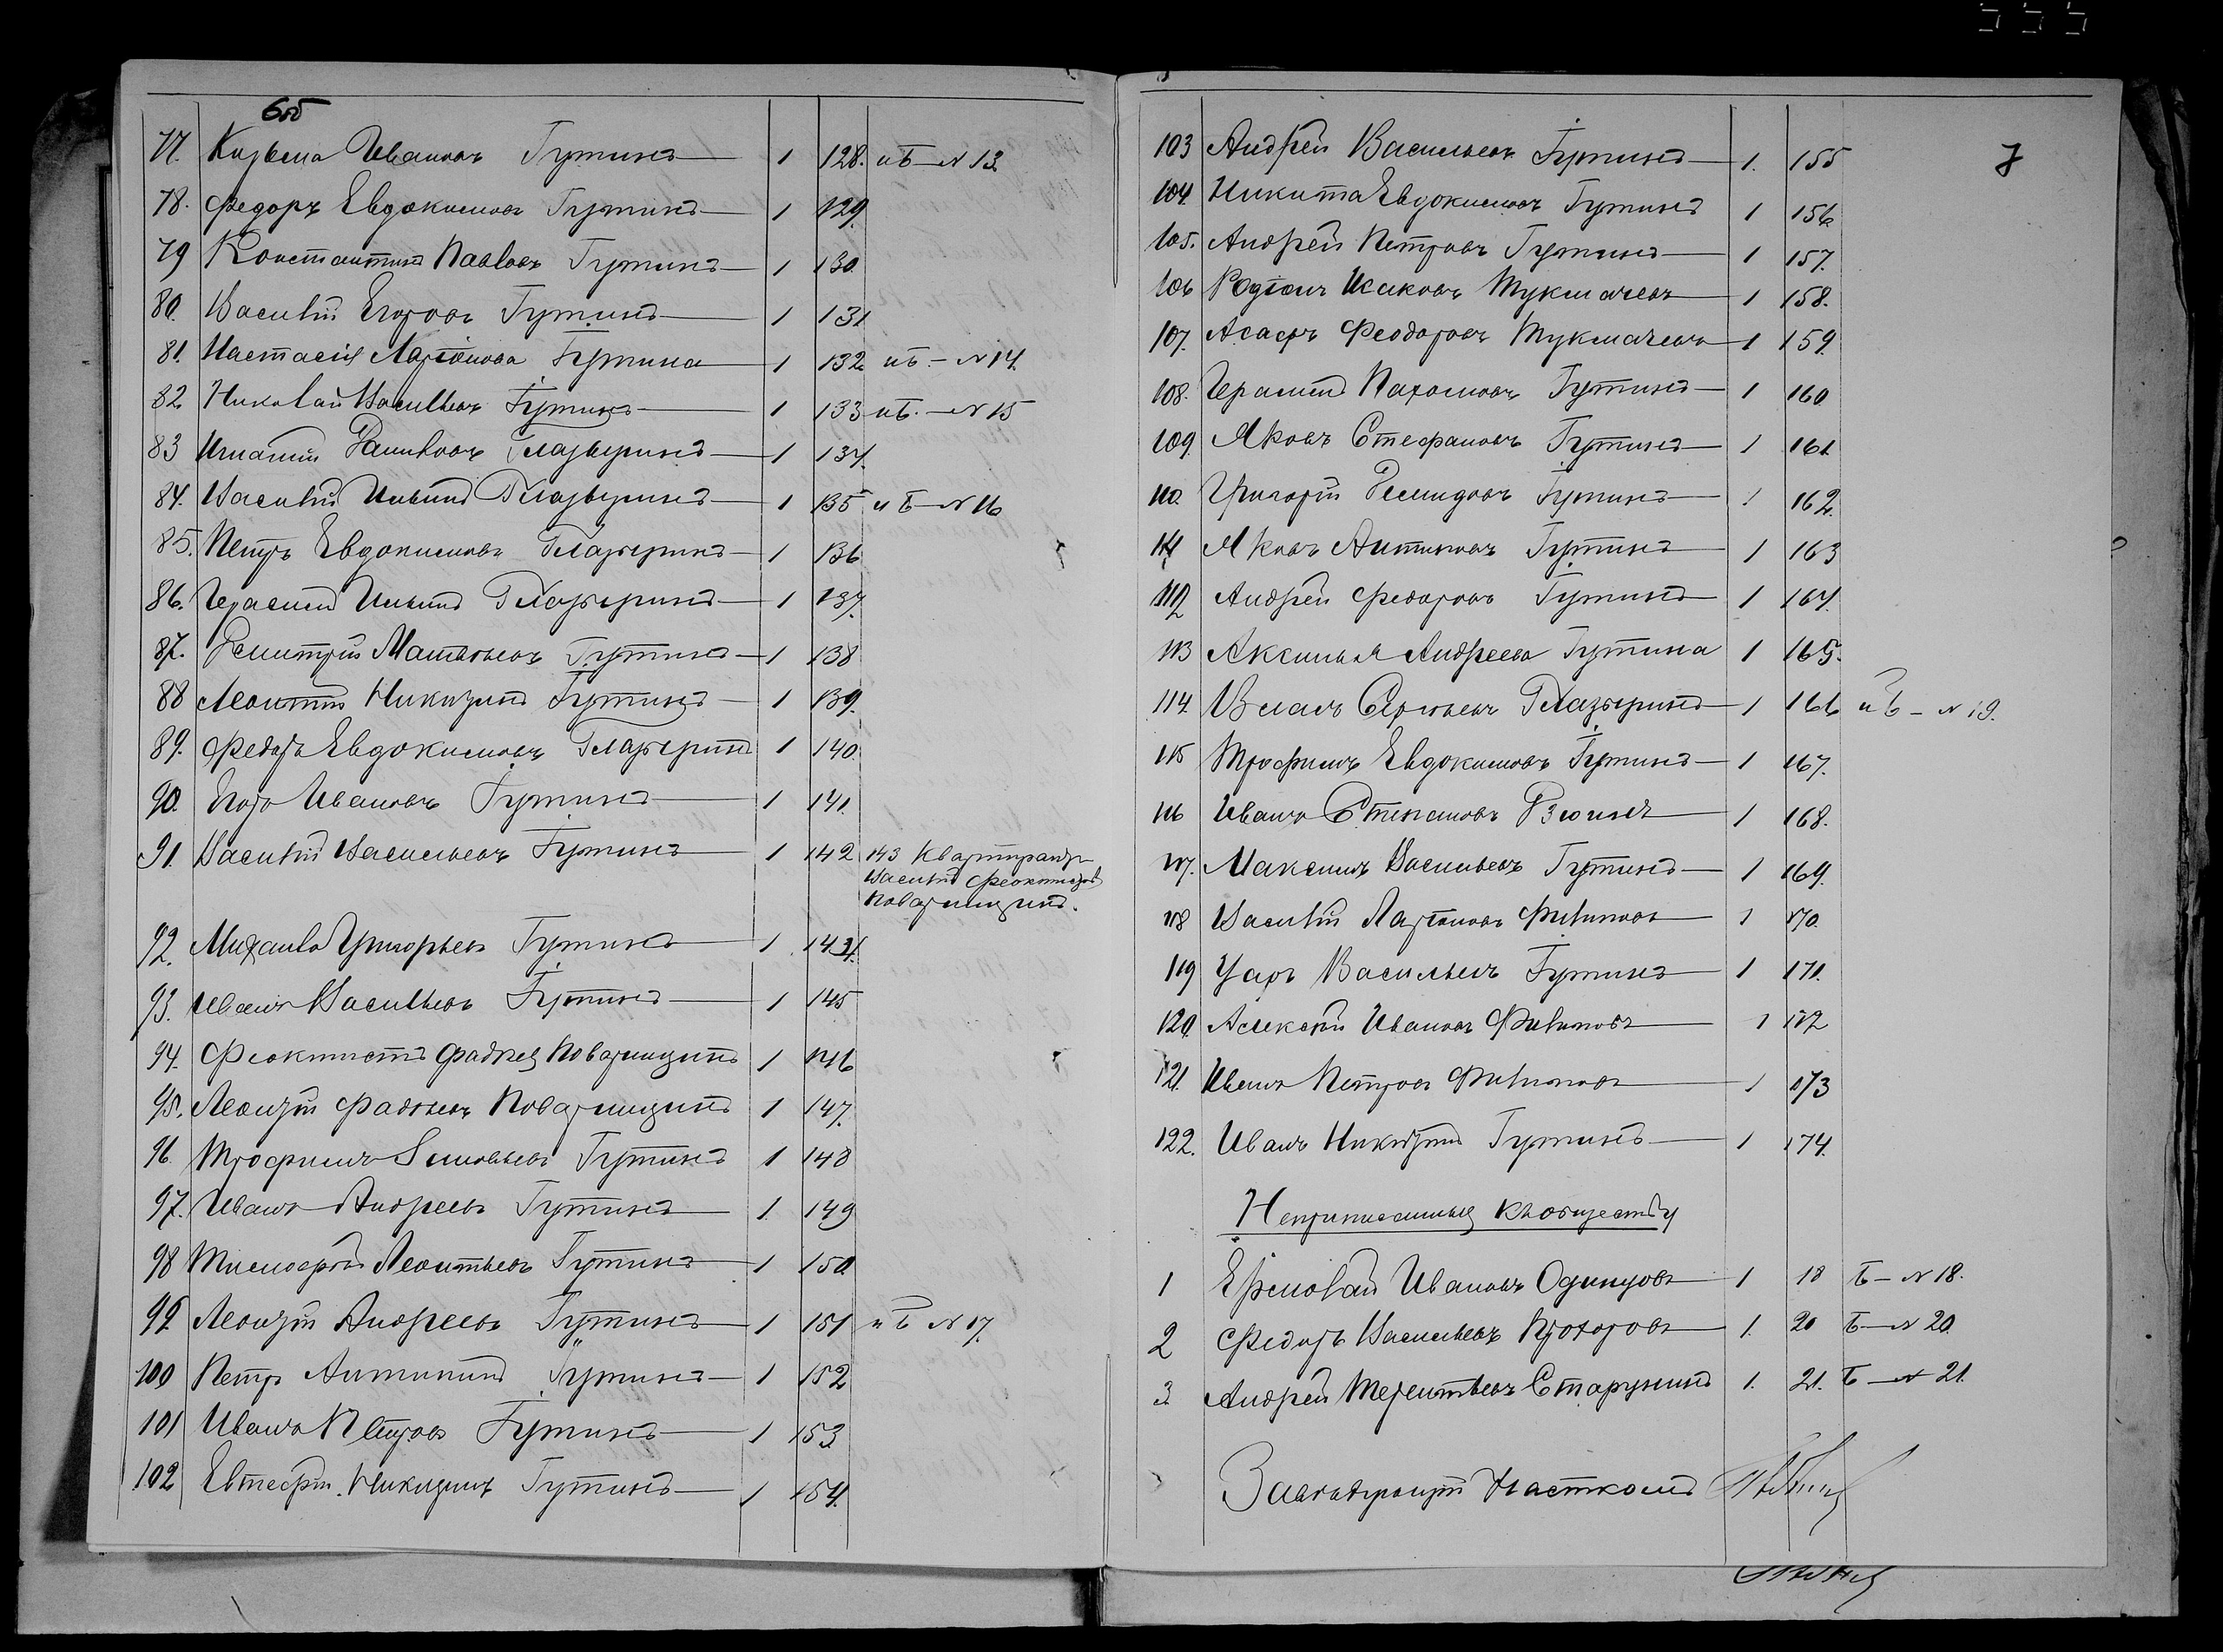 6об
77. Козьма Ивановъ Гутинъ 1 128. и Б № 13.
78. Федоръ Евдокимовъ Гутинъ 1 129.
79 Константинъ Павловъ Гутинъ 1 130.
80. Василій Егоровъ Гутинъ 1 131
81. Настасія Ларіонова Гутина 1 132 и Б. № 14.
82 Николай Васильевъ Гутинъ 1 133 и Б. № 15
83 Игнатій Глазыринъ 1 134.
84. Василій Ильинъ Глазыринъ 1 135 и Б № 16
85. Петръ Евдокимовъ Глазыринъ 1 136
86. Герасимъ Ильинъ Глазыринъ 1 137.
87. Дмитрій Матвѣевъ Гутинъ 1 138
88 Леонтій Никитинъ Гутинъ 1 139.
89. Федоръ Евдокимовъ Глазыринъ 1 140.
90. Егоръ Ивановъ Гутинъ 1 141.
91. Василій Васильевъ Гутинъ 1 142 143 Квартирантъ
Василій Феоктистовъ
Поварницынъ.
92. Михаилъ Григорьевъ Гутинъ 1 144.
93. Иванъ Васильевъ Гутинъ 1 145
94. Феоктистъ Фадѣев Поварницынъ 1 146
95. Леонтій Фадѣевъ Поварницынъ 1 147.
96. Трофимъ Зиновьевъ Гутинъ 1 148
97. Иванъ Андреевъ Гутинъ 1. 149
98 Тимофей Леонтьевъ Гутинъ 1 150.
99. Леонтій Андреевъ Гутинъ 1 151 и Б № 17.
100 Петръ Антипинъ Гутинъ 1 152
101 Иванъ Петровъ Гутинъ 1 153
102 Евтефій Никитинъ Гутинъ 1 154.
7
103 Андрей Васильевъ Гутинъ 1. 155
104. Никита Евдокимовъ Гутинъ 1 156
105. Андрей Петровъ Гутинъ 1 157.
106 Родіонъ Исаковъ Тукмачевъ 1 158.
107. Асафъ Феодоровъ Тукмачевъ 1 159.
108. Герасимъ Пахомовъ Гутинъ 1 160
109. Яковъ Стефановъ Гутинъ 1 161.
110. Григорій Демидовъ Гутинъ 1 162.
111 Яковъ Антиповъ Гутинъ 1 163
112 Андрей Федоровъ Гутинъ 1 164.
113 Аксинья Андреева Гутина 1 165.
114. Власъ Сергѣевъ Глазыринъ 1 166 и Б № 19.
115 Трофимъ Евдокимовъ Гутинъ 1 167.
116 Иванъ Степановъ 1 168.
117. Максимъ Васильевъ Гутинъ 1 169.
118 Василій Ларіоновъ Филиповъ 1 170.
119 Уаръ Васильевъ Гутинъ 1 171.
120. Алексѣй Ивановъ Филиповъ 1 172
121. Иванъ Петровъ Филиповъ 1 173
122. Иванъ Никитинъ Гутинъ 1 174.
Неприписанныя къ обществу
1 Ермолай Ивановъ Одинцовъ 1 18 Б № 18.
2 Федоръ Васильевъ Прохоровъ 1. 20 Б № 20.
3. Андрей Терентьевъ Старунинъ 1. 21. Б № 21.
Завѣдующій участкомъ